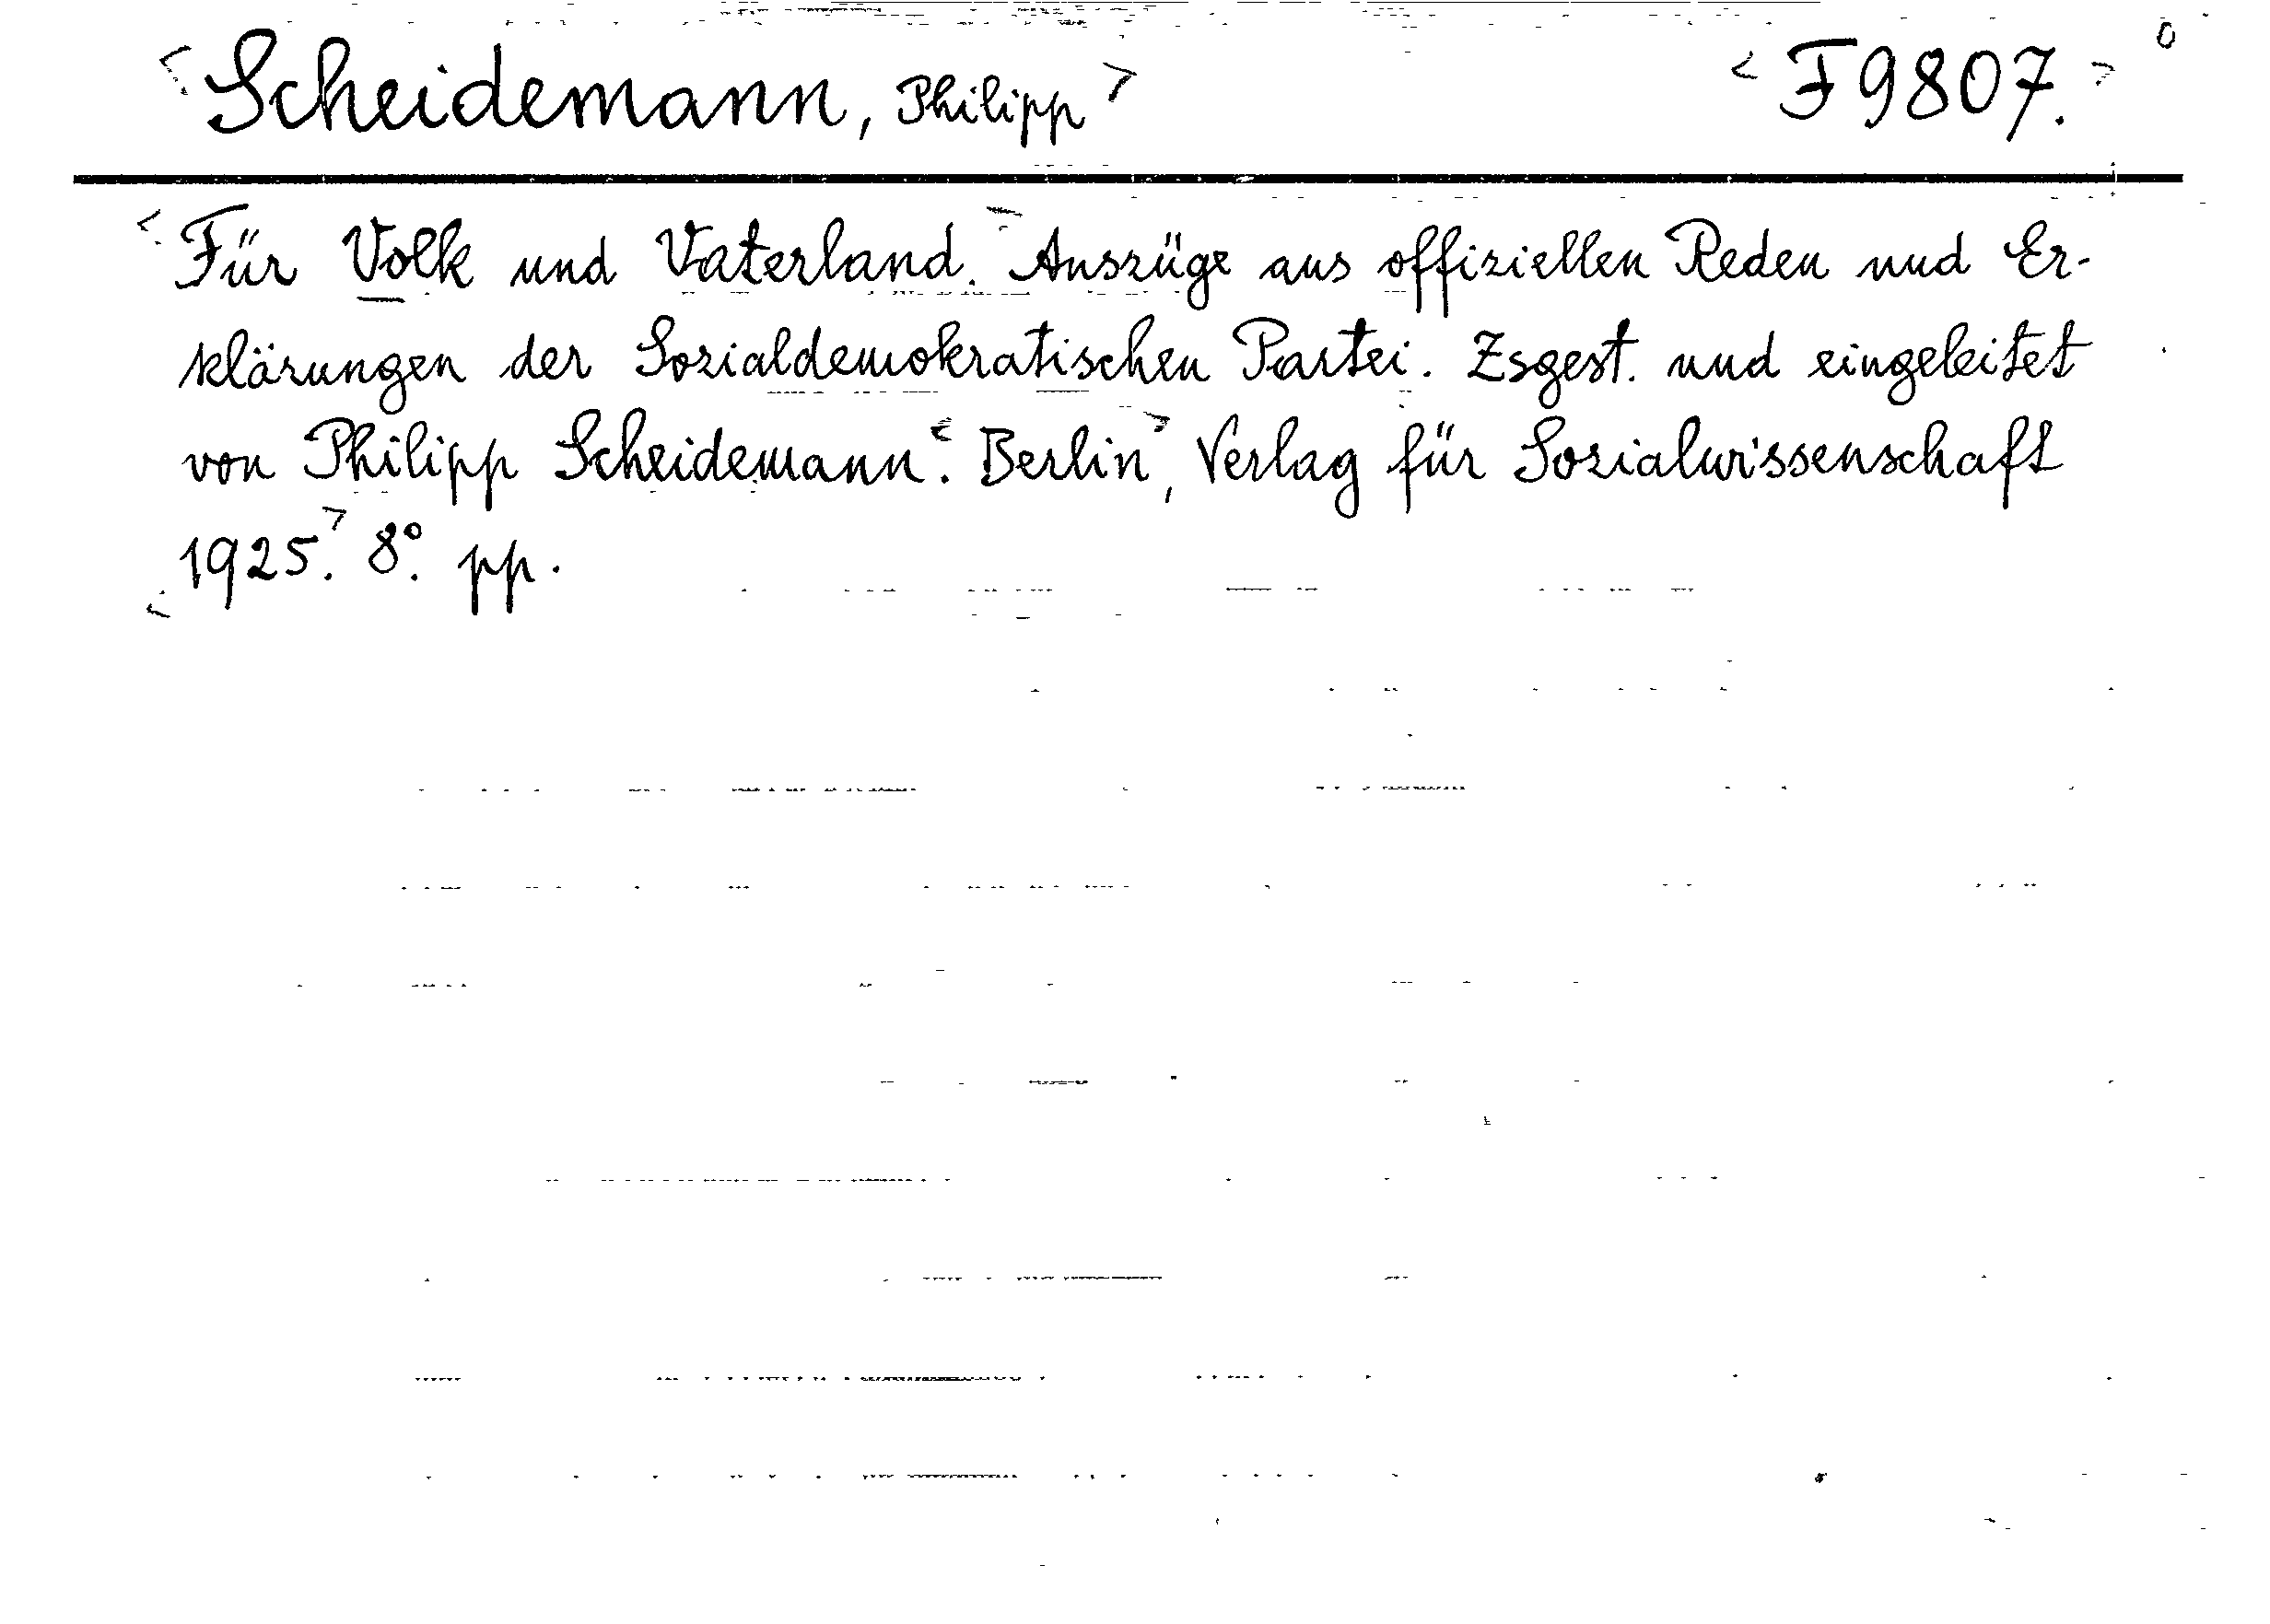 Scheidemann, Philipp F9807.
Für Volk und Vaterland. Auszüge aus offiziellen Reden und Er-
klärungen der Sozialdemokratischen Partei. Zsgest. und eingeleitet
von Philipp Scheidemann. Berlin, Verlag für Sozialwissenschaft
1925. 8°. pp.